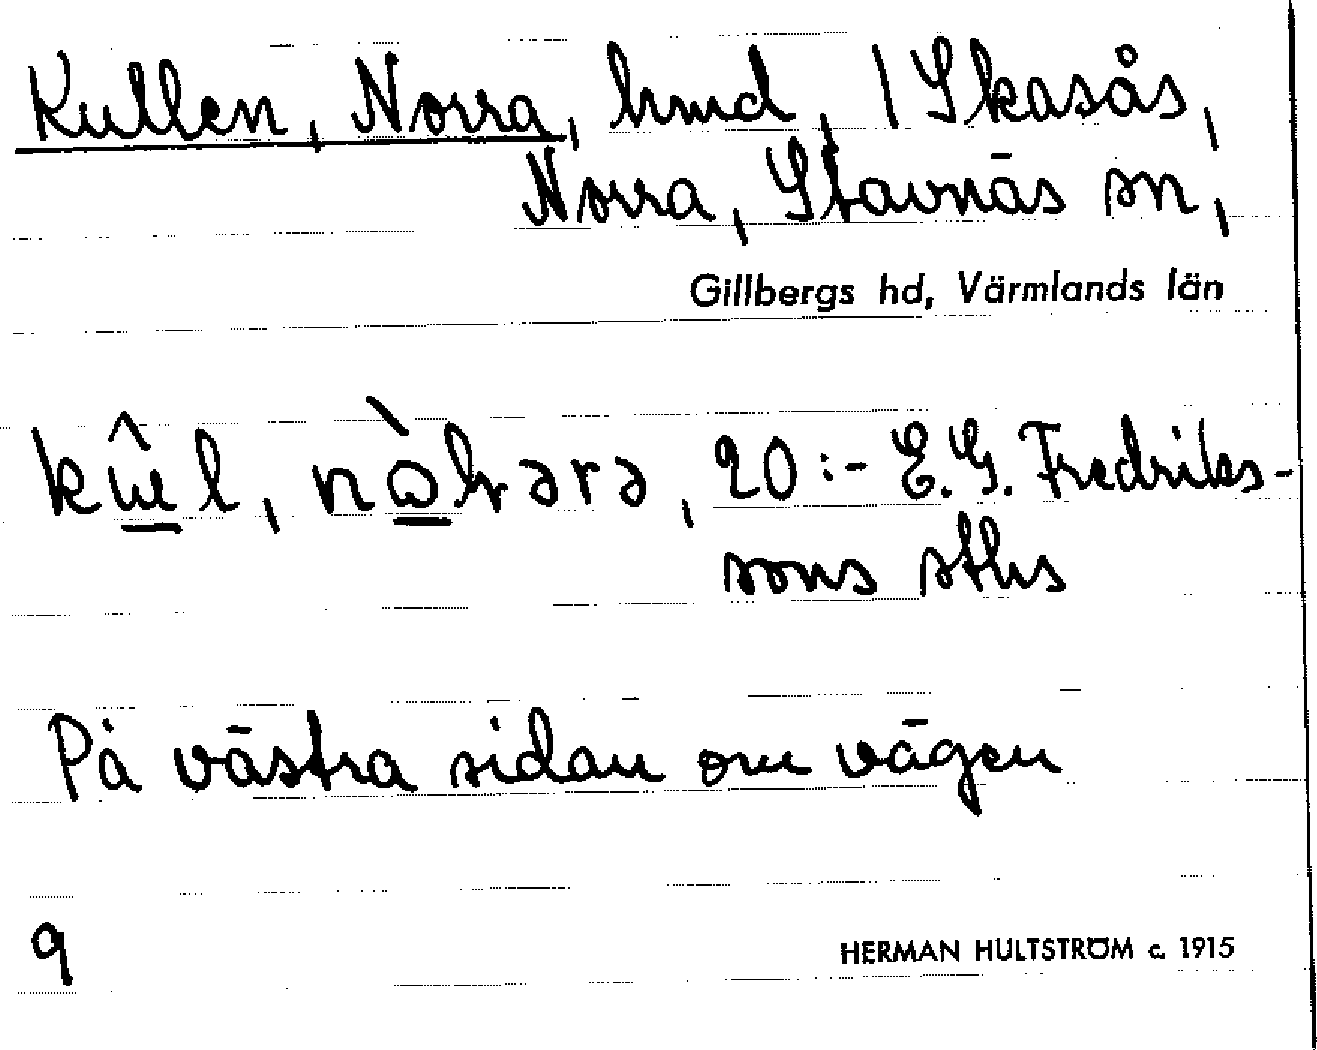 Kullen, Norra, hmd, / Skasås,
Norra, Stavnäs sn,
Gillbergs hd, Värmlands län
E. G. Fredriks-
sons sths
På västra sidan om vägen
9
HERMAN HULTSTRÖM c. 1915